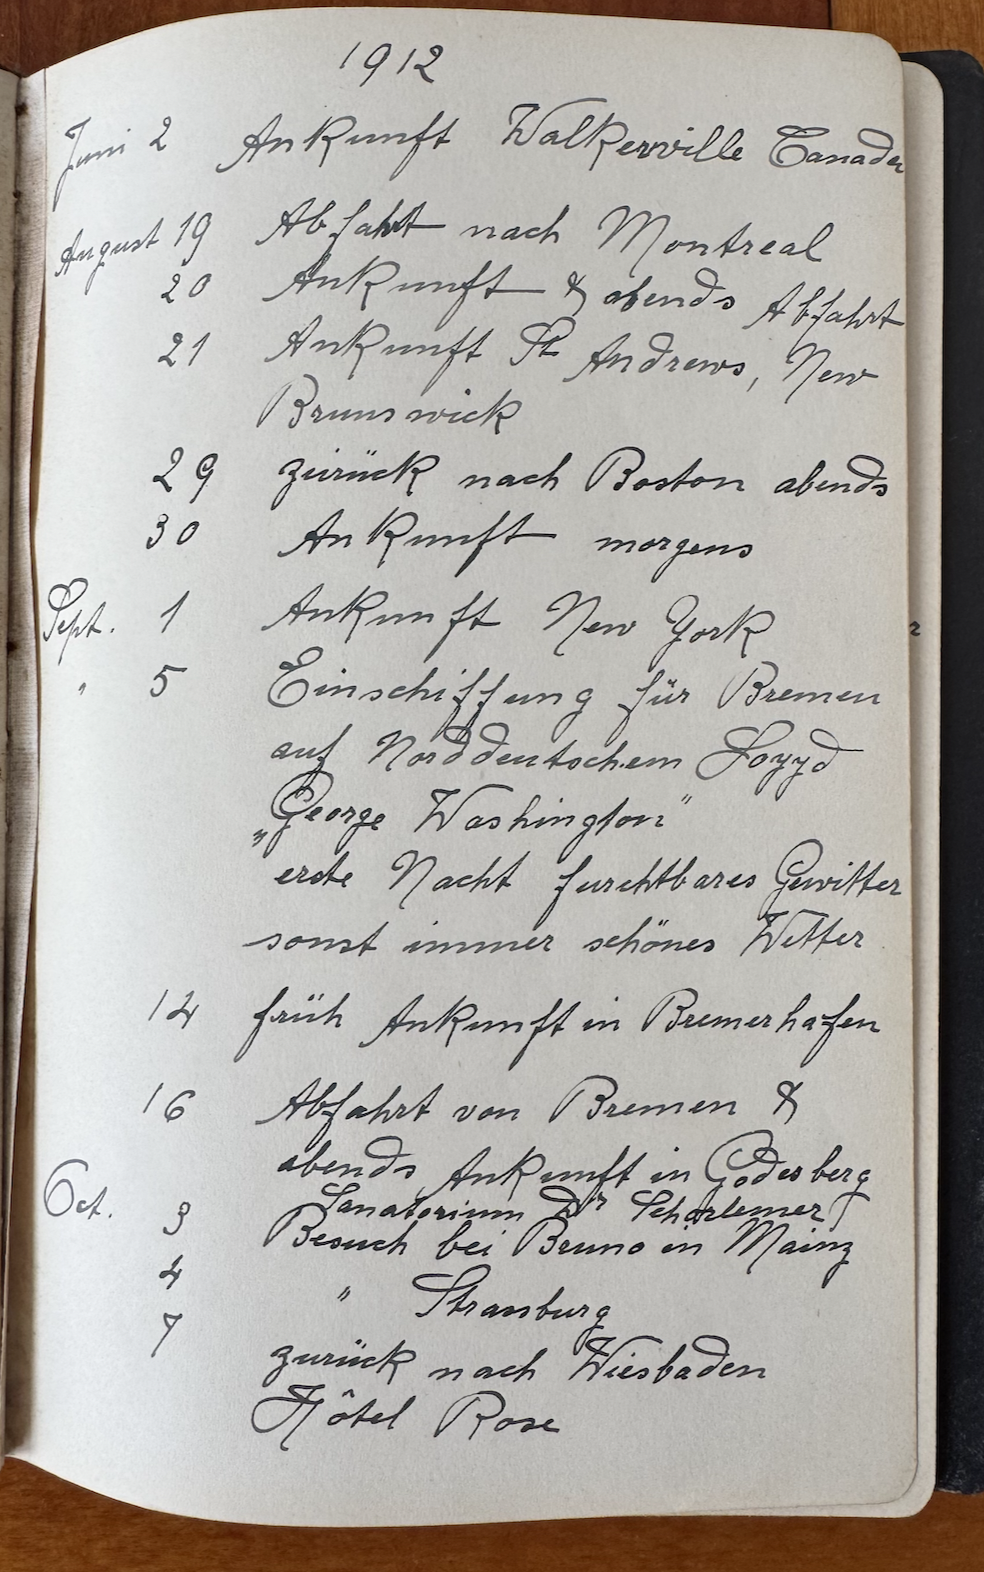 1912
Juni 2 Ankunft Walkerville Canada
August 19 Abfahrt nach Montreal
20 Ankunft & abends Abfahrt
21 Ankunft St Andrews, New
Brunswick
29 zurück nach Boston abends
30 Ankunft morgens
Sept. 1 Ankunft New York
" 5 Einschiffung für Bremen
auf Norddeutschem Loyyd
„George Washington"
erste Nacht furchtbares Gewitter
sonst immer schönes Wetter
14 früh Ankunft in Bremerhafen
16 Abfahrt von Bremen &
abends Ankunft in Godesberg
Sanatorium Dr Schorlemer
Oct. 3 Besuch bei Bruno in Mainz
4 " Strassburg
7 zurück nach Wiesbaden
Hôtel Rose